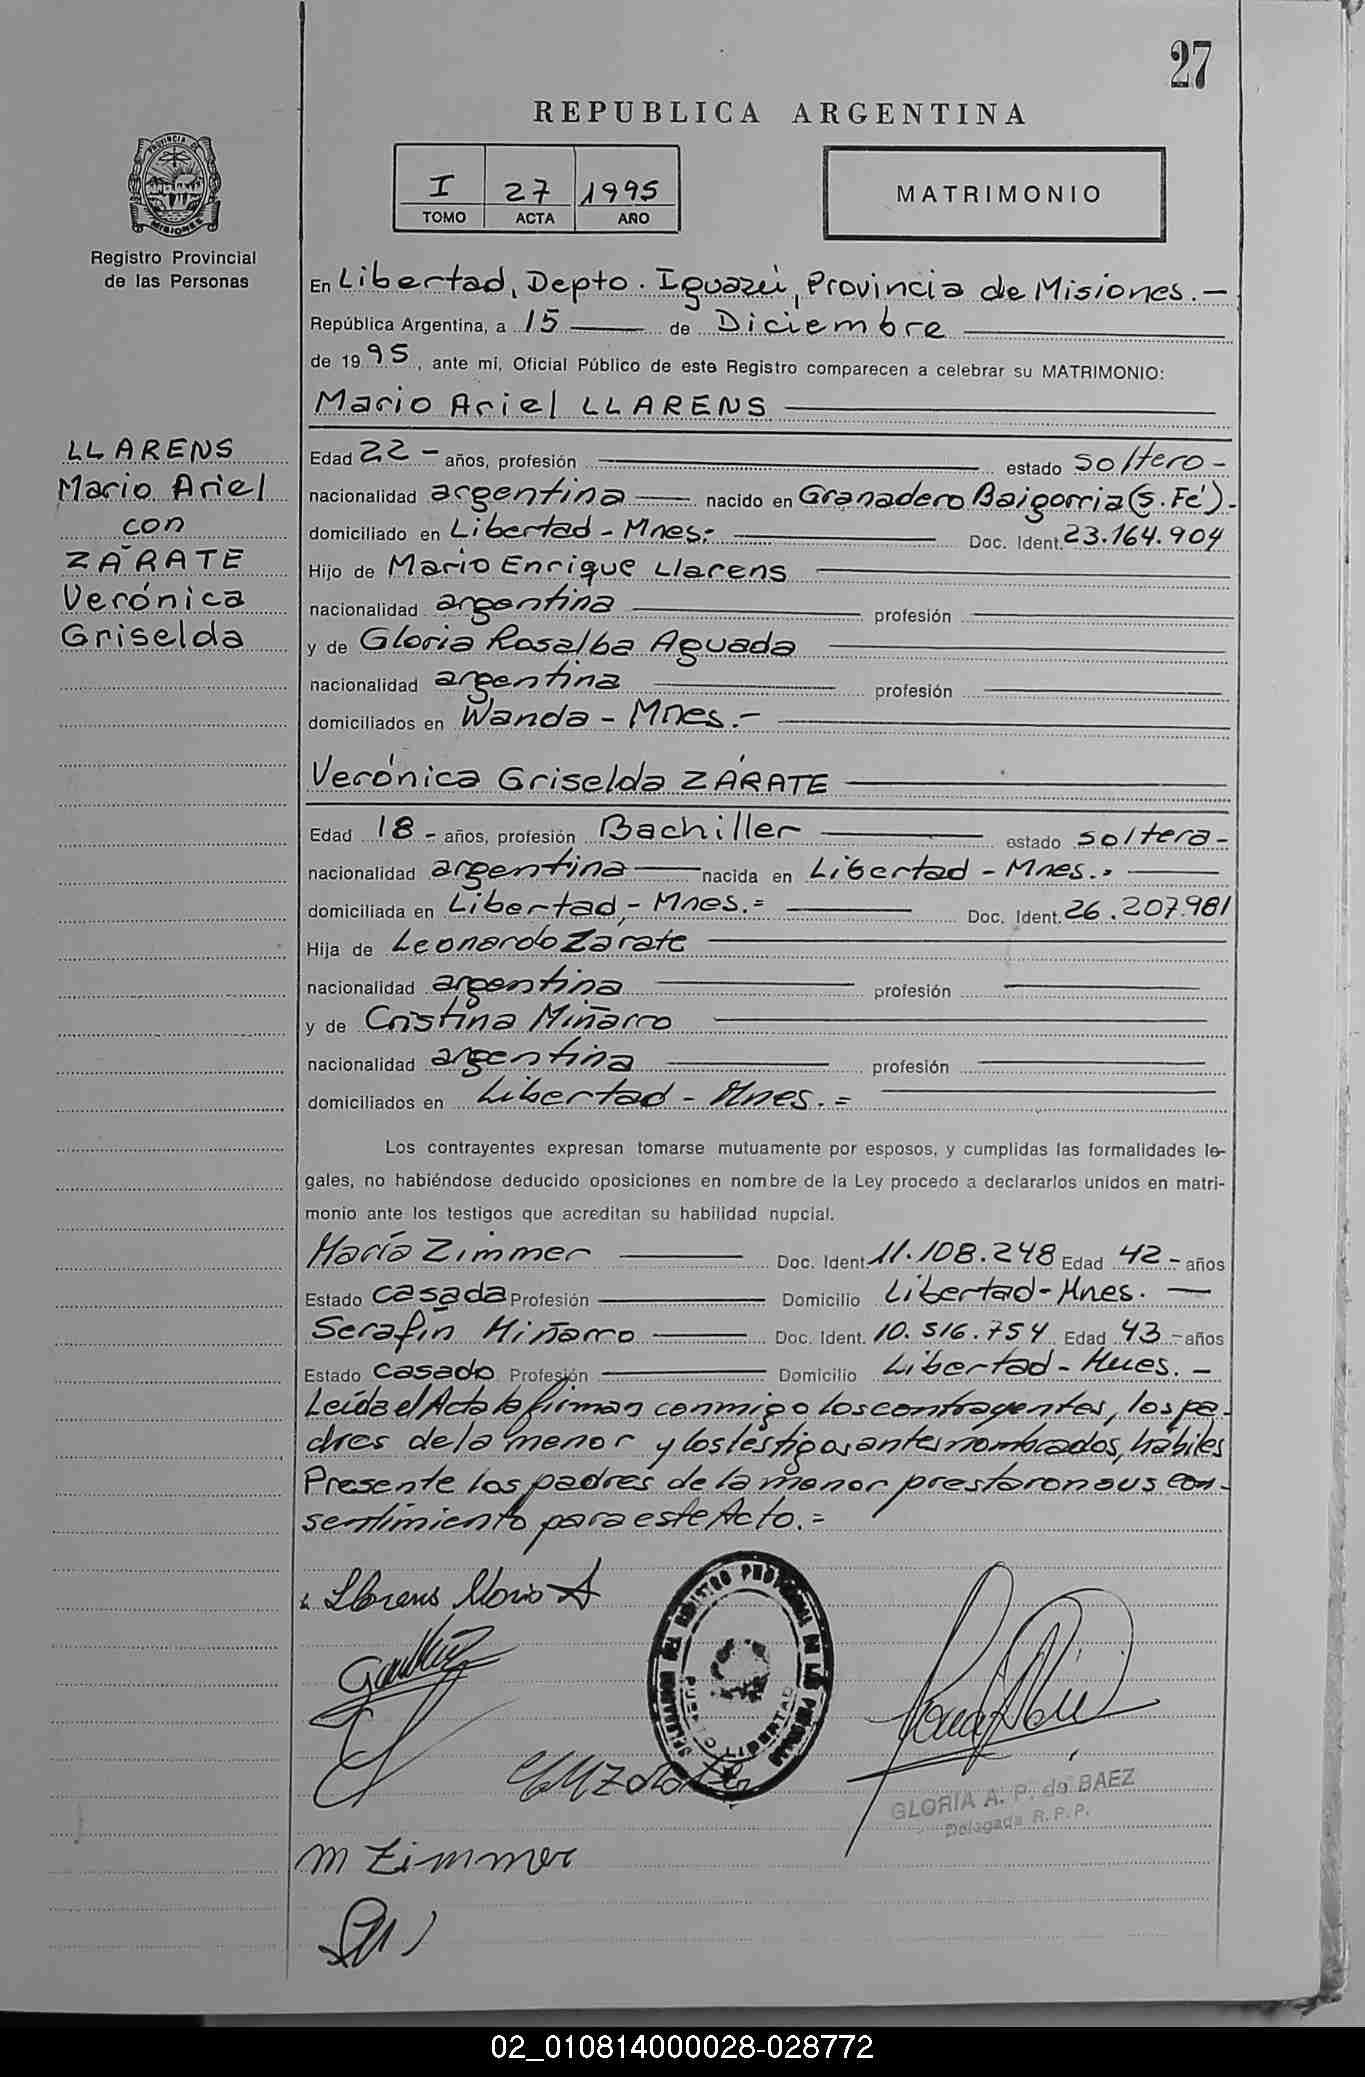 27
REPUBLICA ARGENTINA
I 27 1995
TOMO ACTA AÑO
MATRIMONIO
PROVINCIA DE
MISIONES
Registro Provincial
de las Personas
En Libertad, Depto. Iguazú, Provincia de Misiones.-
República Argentina, a 15 de Diciembre
de 1995, ante mí, Oficial Público de este Registro comparecen a celebrar su MATRIMONIO:
Mario Ariel LLARENS
LLARENS
Mario Ariel
con
ZÁRATE
Verónica
Griselda
Edad 22 - años, profesión estado soltero -
nacionalidad argentina nacido en Granadero Baigorria (S. Fé).-
domiciliado en Libertad - Mnes.- Doc. Ident. 23.164.904
Hijo de Mario Enrique Llarens
nacionalidad argentina profesión
y de Gloria Rosalba Aguada
nacionalidad argentina profesión
domiciliados en Wanda - Mnes.-
Verónica Griselda ZÁRATE
Edad 18 - años, profesión Bachiller estado soltera -
nacionalidad argentina nacida en Libertad - Mnes.-
domiciliada en Libertad - Mnes.= Doc. Ident. 26.207.981
Hija de Leonardo Zárate
nacionalidad argentina profesión
y de Cristina Miñarro
nacionalidad argentina profesión
domiciliados en Libertad - Mnes.=
Los contrayentes expresan tomarse mutuamente por esposos, y cumplidas las formalidades le-
gales, no habiéndose deducido oposiciones en nombre de la Ley procedo a declararlos unidos en matri-
monio ante los testigos que acreditan su habilidad nupcial.
María Zimmer Doc. Ident. 11.108.248 Edad 42 - años
Estado casada Profesión Domicilio Libertad - Mnes.
Serafín Miñarro Doc. Ident. 10.516.754 Edad 43 - años
Estado casado Profesión Domicilio Libertad - Mnes.-
Leída el Acta la firman conmigo los contrayentes, los pa-
dres de la menor y los testigos antes nombrados, hábiles
Presente los padres de la menor prestaron sus con-
sentimiento para este Acto.=
Llarens Mario A
M Zimmer
PUERTO LIBERTAD
GLORIA A. P. de BAEZ
Delegada R. P. P.
02_010814000028-028772